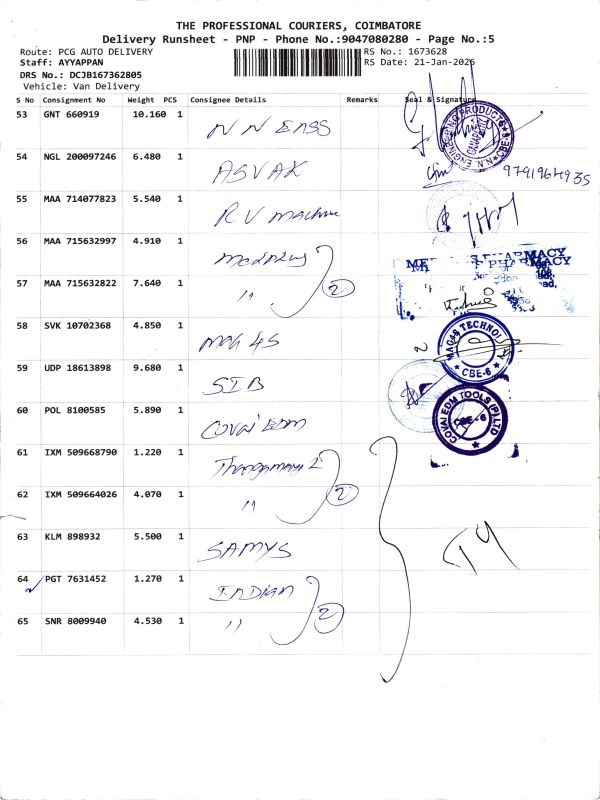 THE PROFESSIONAL COURIERS, COIMBATORE
Delivery Runsheet - PNP - Phone No.:9047080280 - Page No.:5
Route: PCG AUTO DELIVERY
RS No.: 1673628
Staff: AYYAPPAN
RS Date: 21-Jan-2026
DRS No.: DCJB167362805
Vehicle: Van Delivery
S No Consignment No Weight PCS Consignee Details Remarks Seal & Signature
53 GNT 660919 10.160 1 N N ENGG
54 NGL 200097246 6.480 1 ASVAK
9791964935
55 MAA 714077823 5.540 1 RV machine
56 MAA 715632997 4.910 1
PHARMACY
57 MAA 715632822 7.640 1 " 2
58 SVK 10702368 4.850 1
MAGAS TECHNOL
CBE-6
59 UDP 18613898 9.680 1 SIB
60 POL 8100585 5.890 1 Covai EDM
COVAI EDM TOOLS (P) LTD
CBE - 6
61 IXM 509668790 1.220 1
62 IXM 509664026 4.070 1 " 2
63 KLM 898932 5.500 1 SAMYS
64 PGT 7631452 1.270 1 INDIAN
65 SNR 8009940 4.530 1 " 2